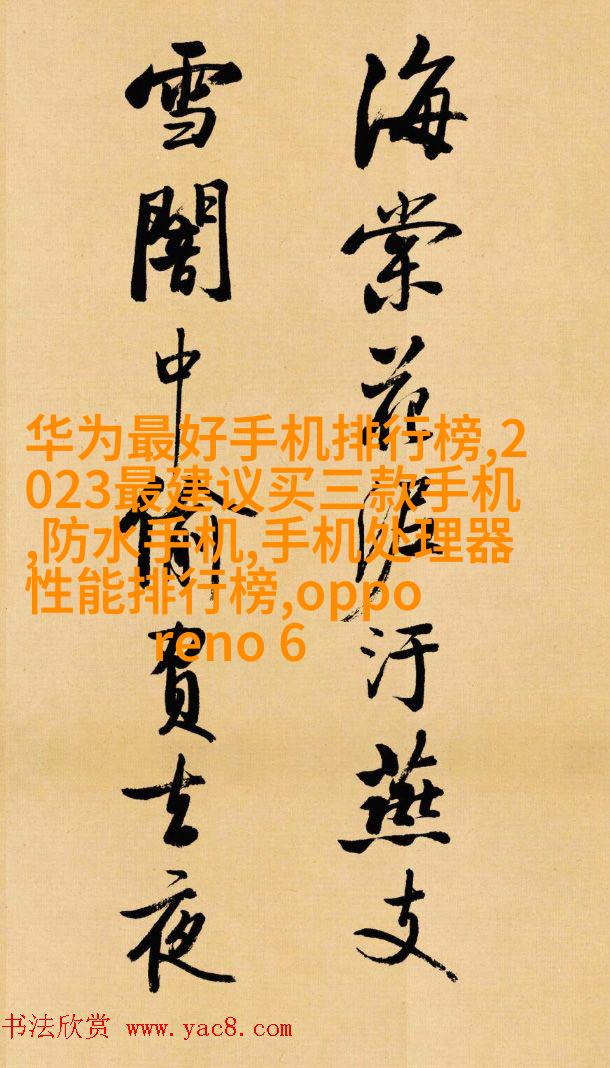 海棠花泥汙燕支
雪闇中偷負去夜
华为最好手机排行榜,2
023最建议买三款手机
,防水手机,手机处理器
性能排行榜,oppo
reno 6
书法欣赏 www.yac8.com